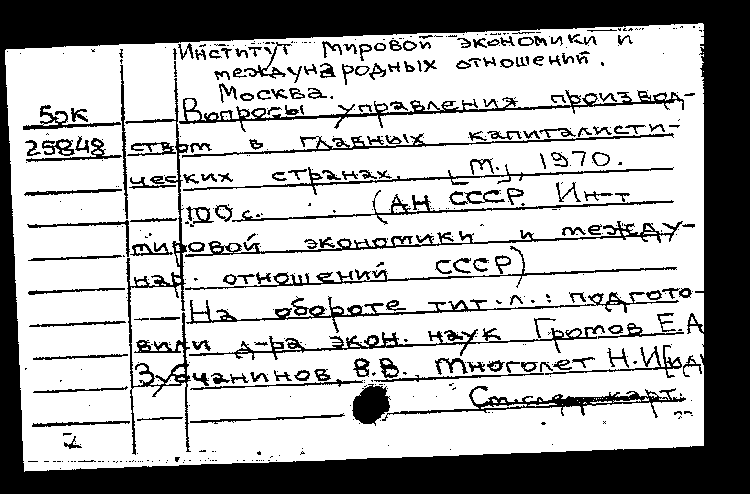 Институт мировой экономики и
международных отношений.
Москва.
Бок Вопросы управления производ-
25848 ством в главных капиталисти-
ческих странах. [М.], 1970.
100 с. (АН СССР. Ин-т
мировой экономики и между-
нар. отношений СССР)
На обороте тит. л.: подгото-
вили д-ра экон. наук Громов Е.А
Зубчанинов, В.В., Многолет Н.И[и др
См. след. карт.